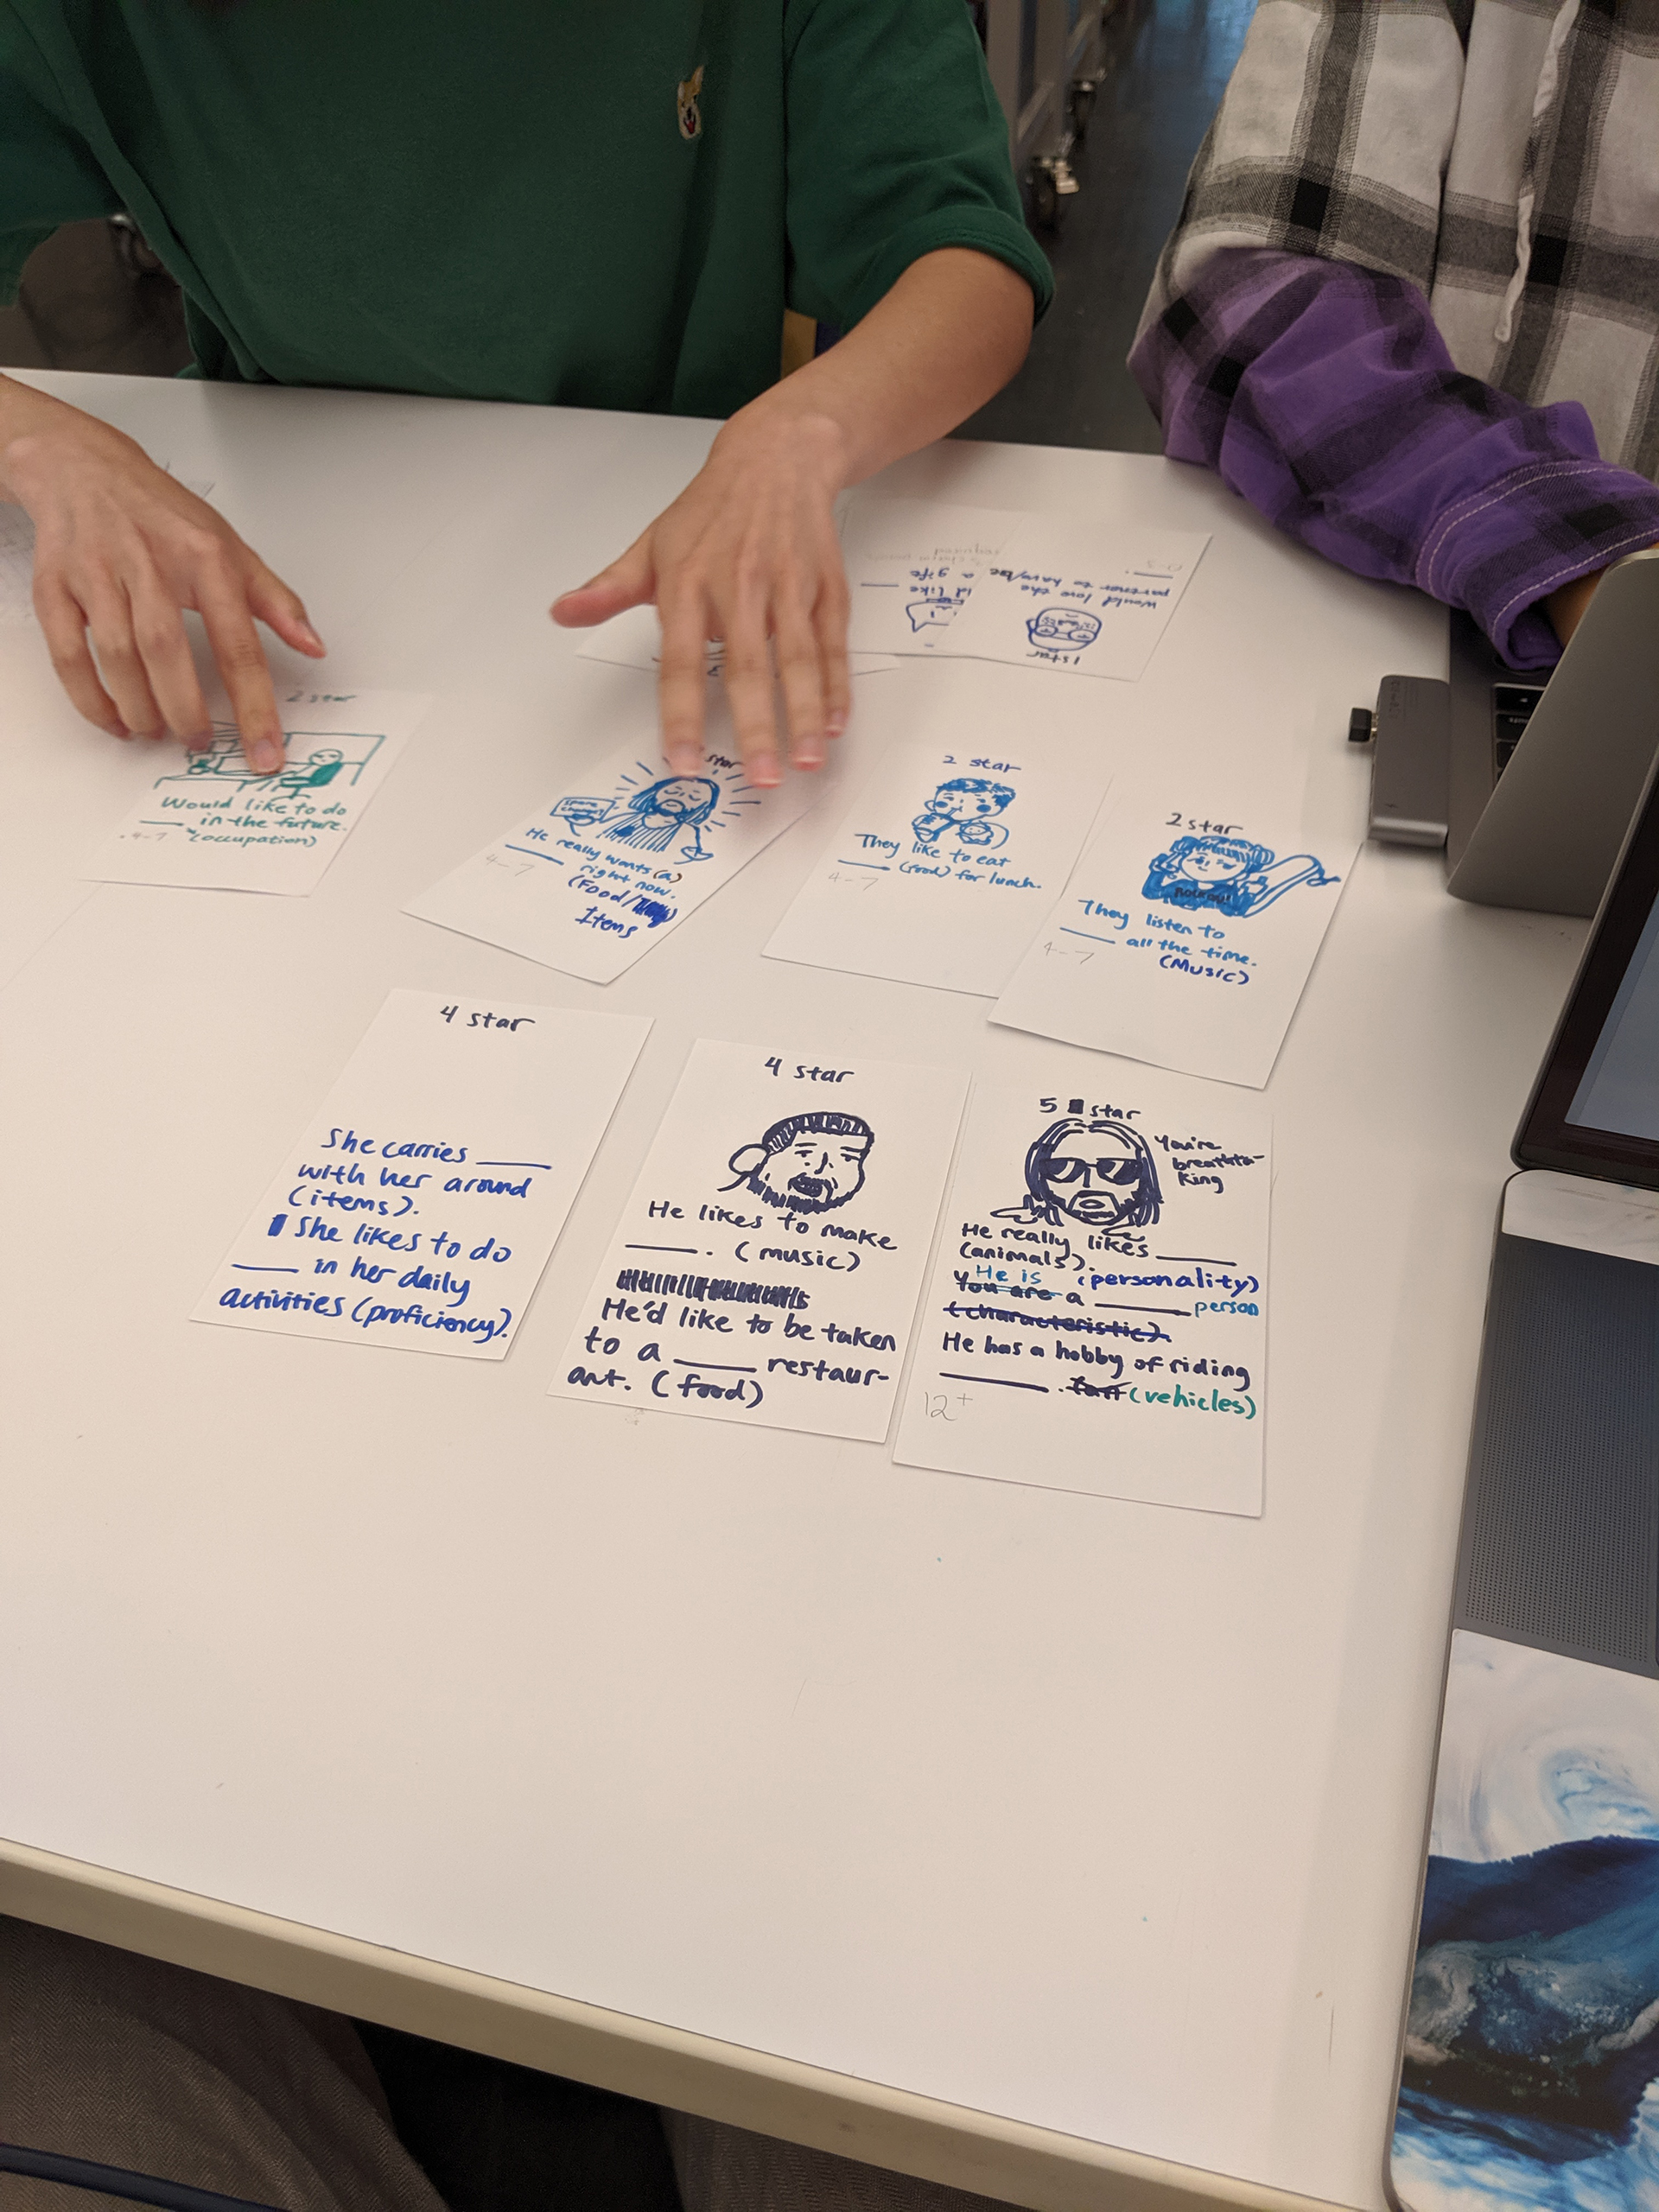 would love the
partner to have/be
1 star
id like
a gift
2 star
Would like to do
in the future.
4-7 (occupation)
star
spare
change?
He really wants (a)
right now.
4-7 (Food/
Items
2 star
They like to eat
(food) for lunch.
4-7
2 star
They listen to
all the time.
4-7 (Music)
4 star
She carries
with her around
(items).
She likes to do
in her daily
activities (proficiency).
4 star
He likes to make
. (music)
He'd like to be taken
to a restaur-
ant. (food)
5 star
You're
breathta-
king
He really likes
(animals).
He is (personality)
You are a person
(characteristic).
He has a hobby of riding
. (vehicles)
12+